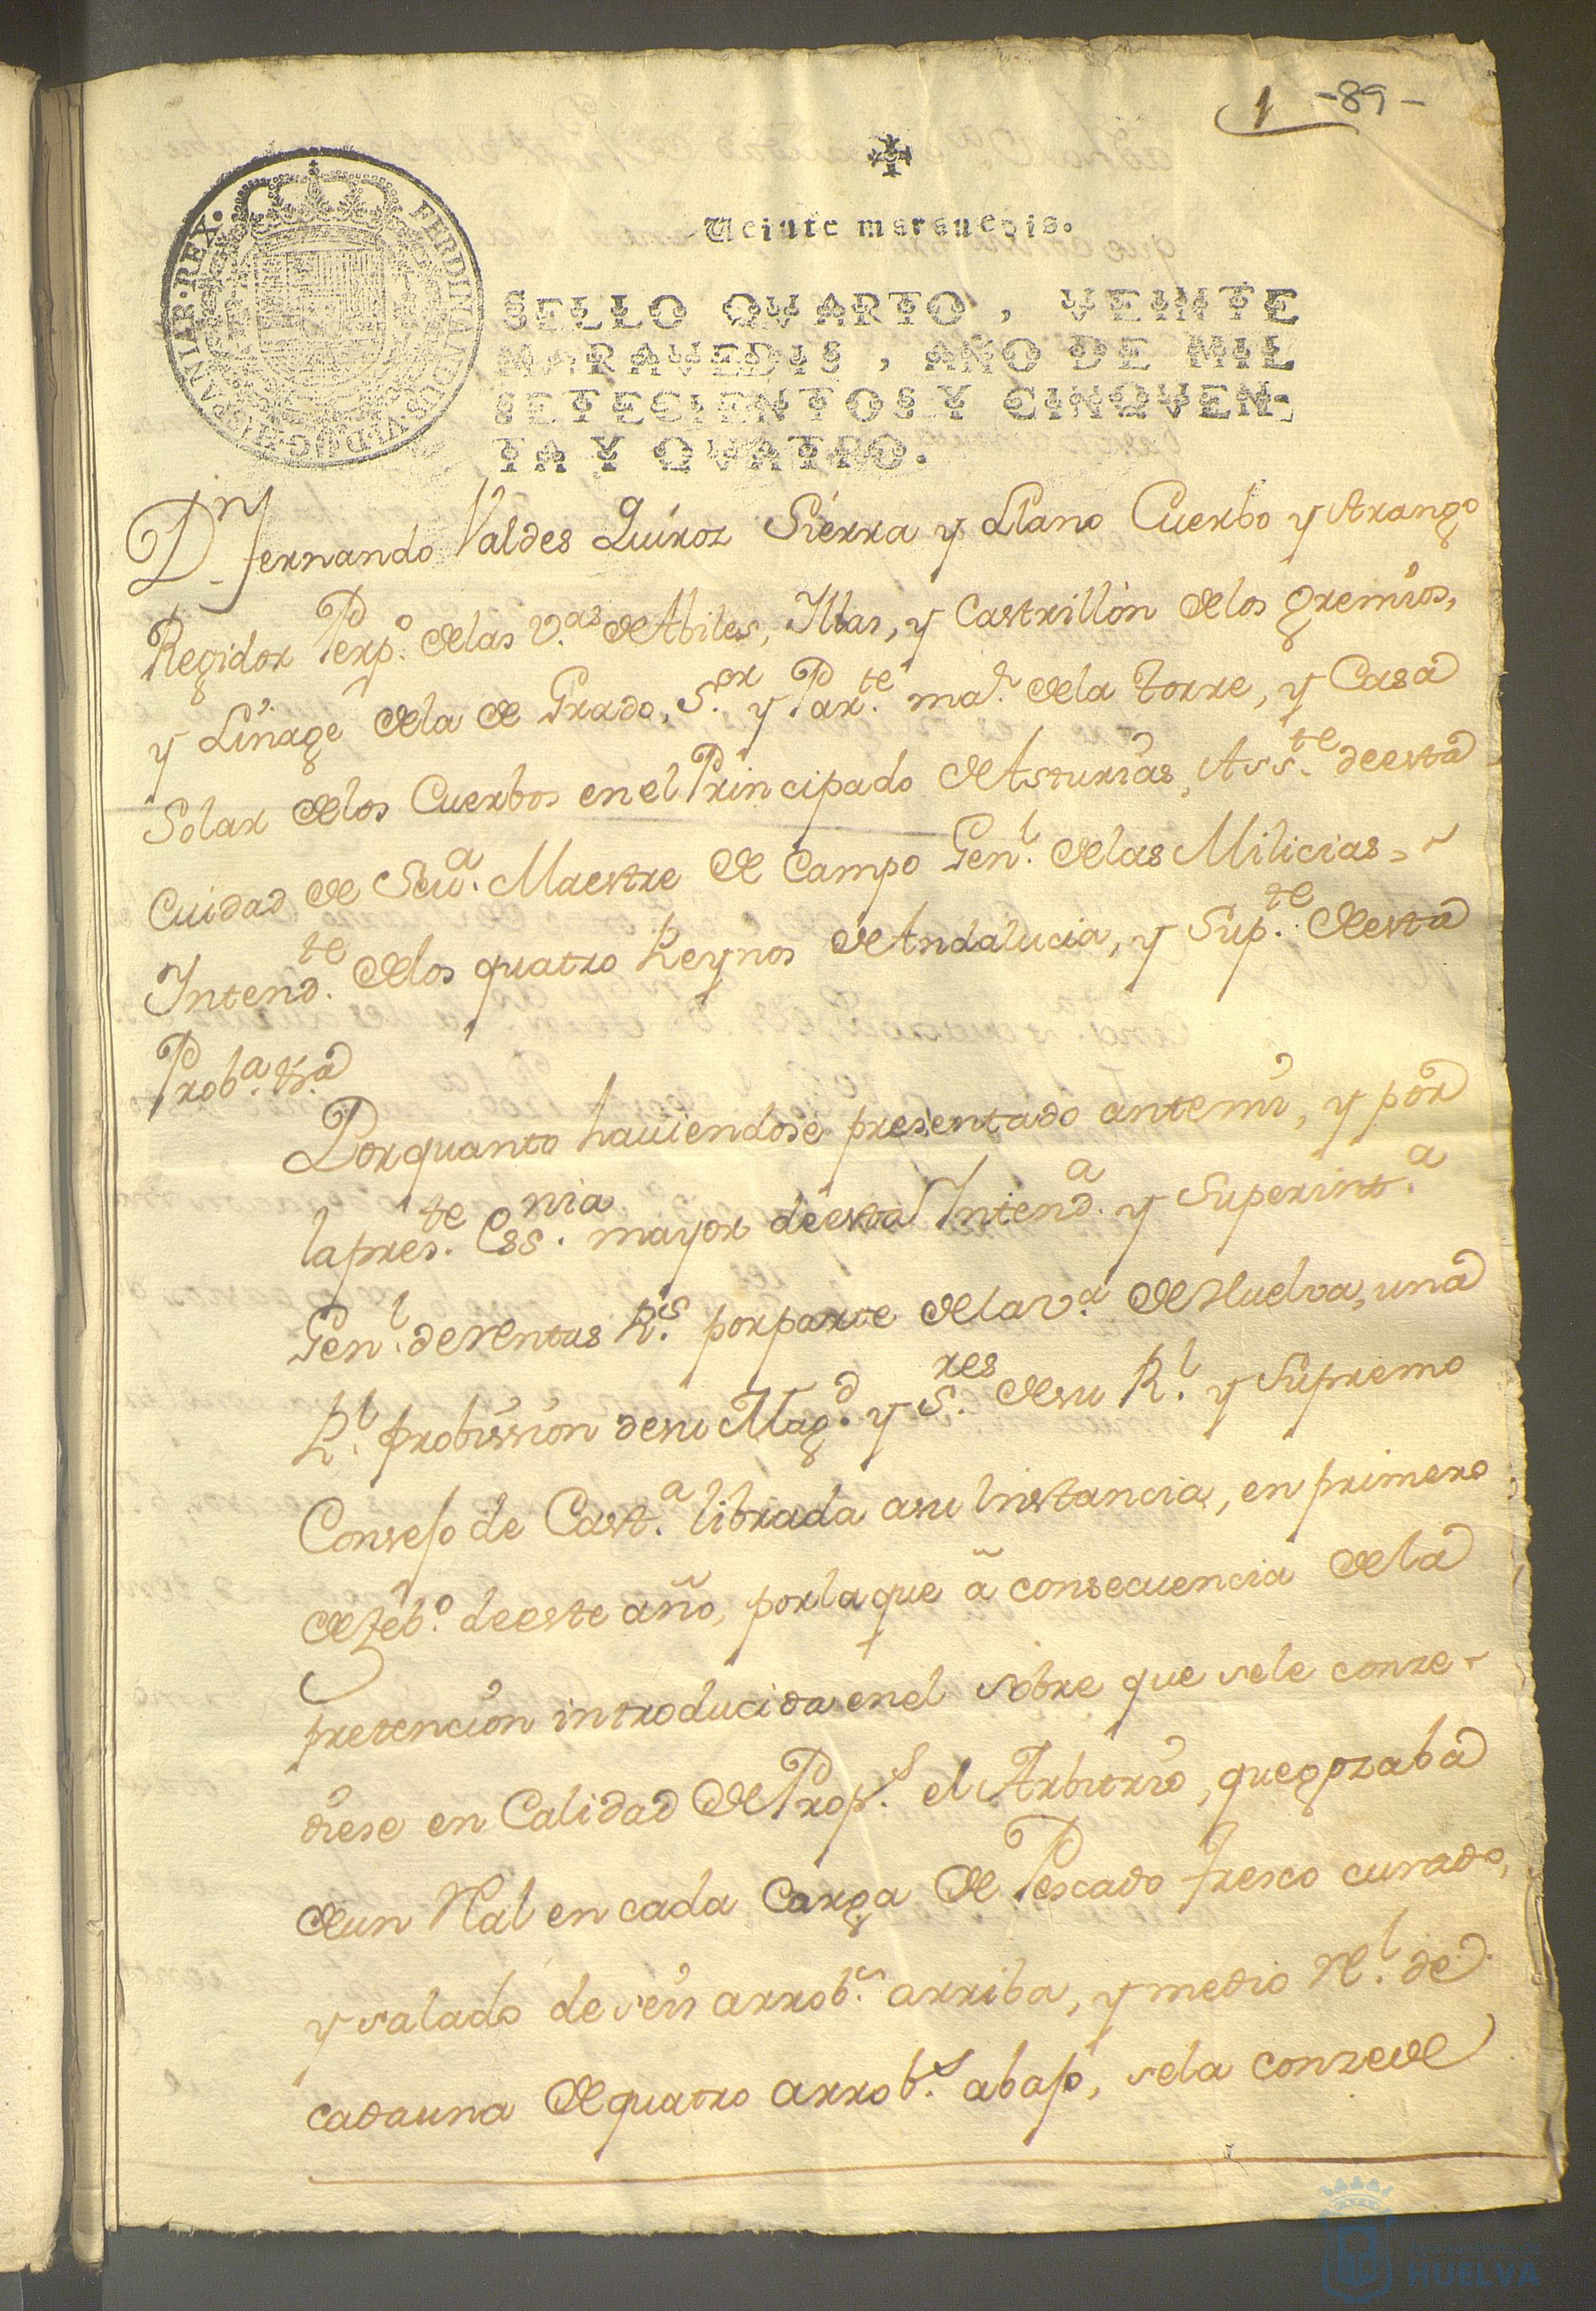 1 -89-
Veinte maravedis.
FERDINANDUS.VI.D.G.HISPANIAR.REX.
SELLO QVARTO, VEINTE
MARAVEDIS, AÑO DE MIL
SETECIENTOS Y CINQVEN-
TA Y QVATRO.
Dn Fernando Valdes Quiroz Sierra y Llano Cuerbo y Arango
Regidor Perp.o de las V.as de Abiles, Illas, y Castrillón de los gremios,
y Linage de la de Grado, S.or y Par.te ma.r de la Torre, y Casa
Solar de los Cuerbos en el Principado de Asturias, Ass.te de esta
Cuidad de Seu.a Maestre de Campo Gen.l de las Milicias
Intend.te de los quatro Reynos de Andalucia, y Sup.te de esta
Prob.a &.a
Por quanto haviendose presentado ante mi, y por
la pres.te Ess.nia mayor de esta Intend.a y Superint.a
Gen.l de rentas R.s por parte de la v.a de Huelva, una
R.l probission de su Mag.d y S.res de su R.l y Supremo
Consejo de Cast.a librada a su Instancia, en primero
de feb.o de este año, por la que â consecuencia de la
pretencion introducida en el sobre que se le conze-
diese en Calidad de Prop.s el Arbitrio, que gozaba
de un Real en cada Carga de Pescado fresco curado,
y salado de seis arrob.s arriba, y medio R.l de
cada una de quatro arrob.s abajo, se la conzede
HUELVA